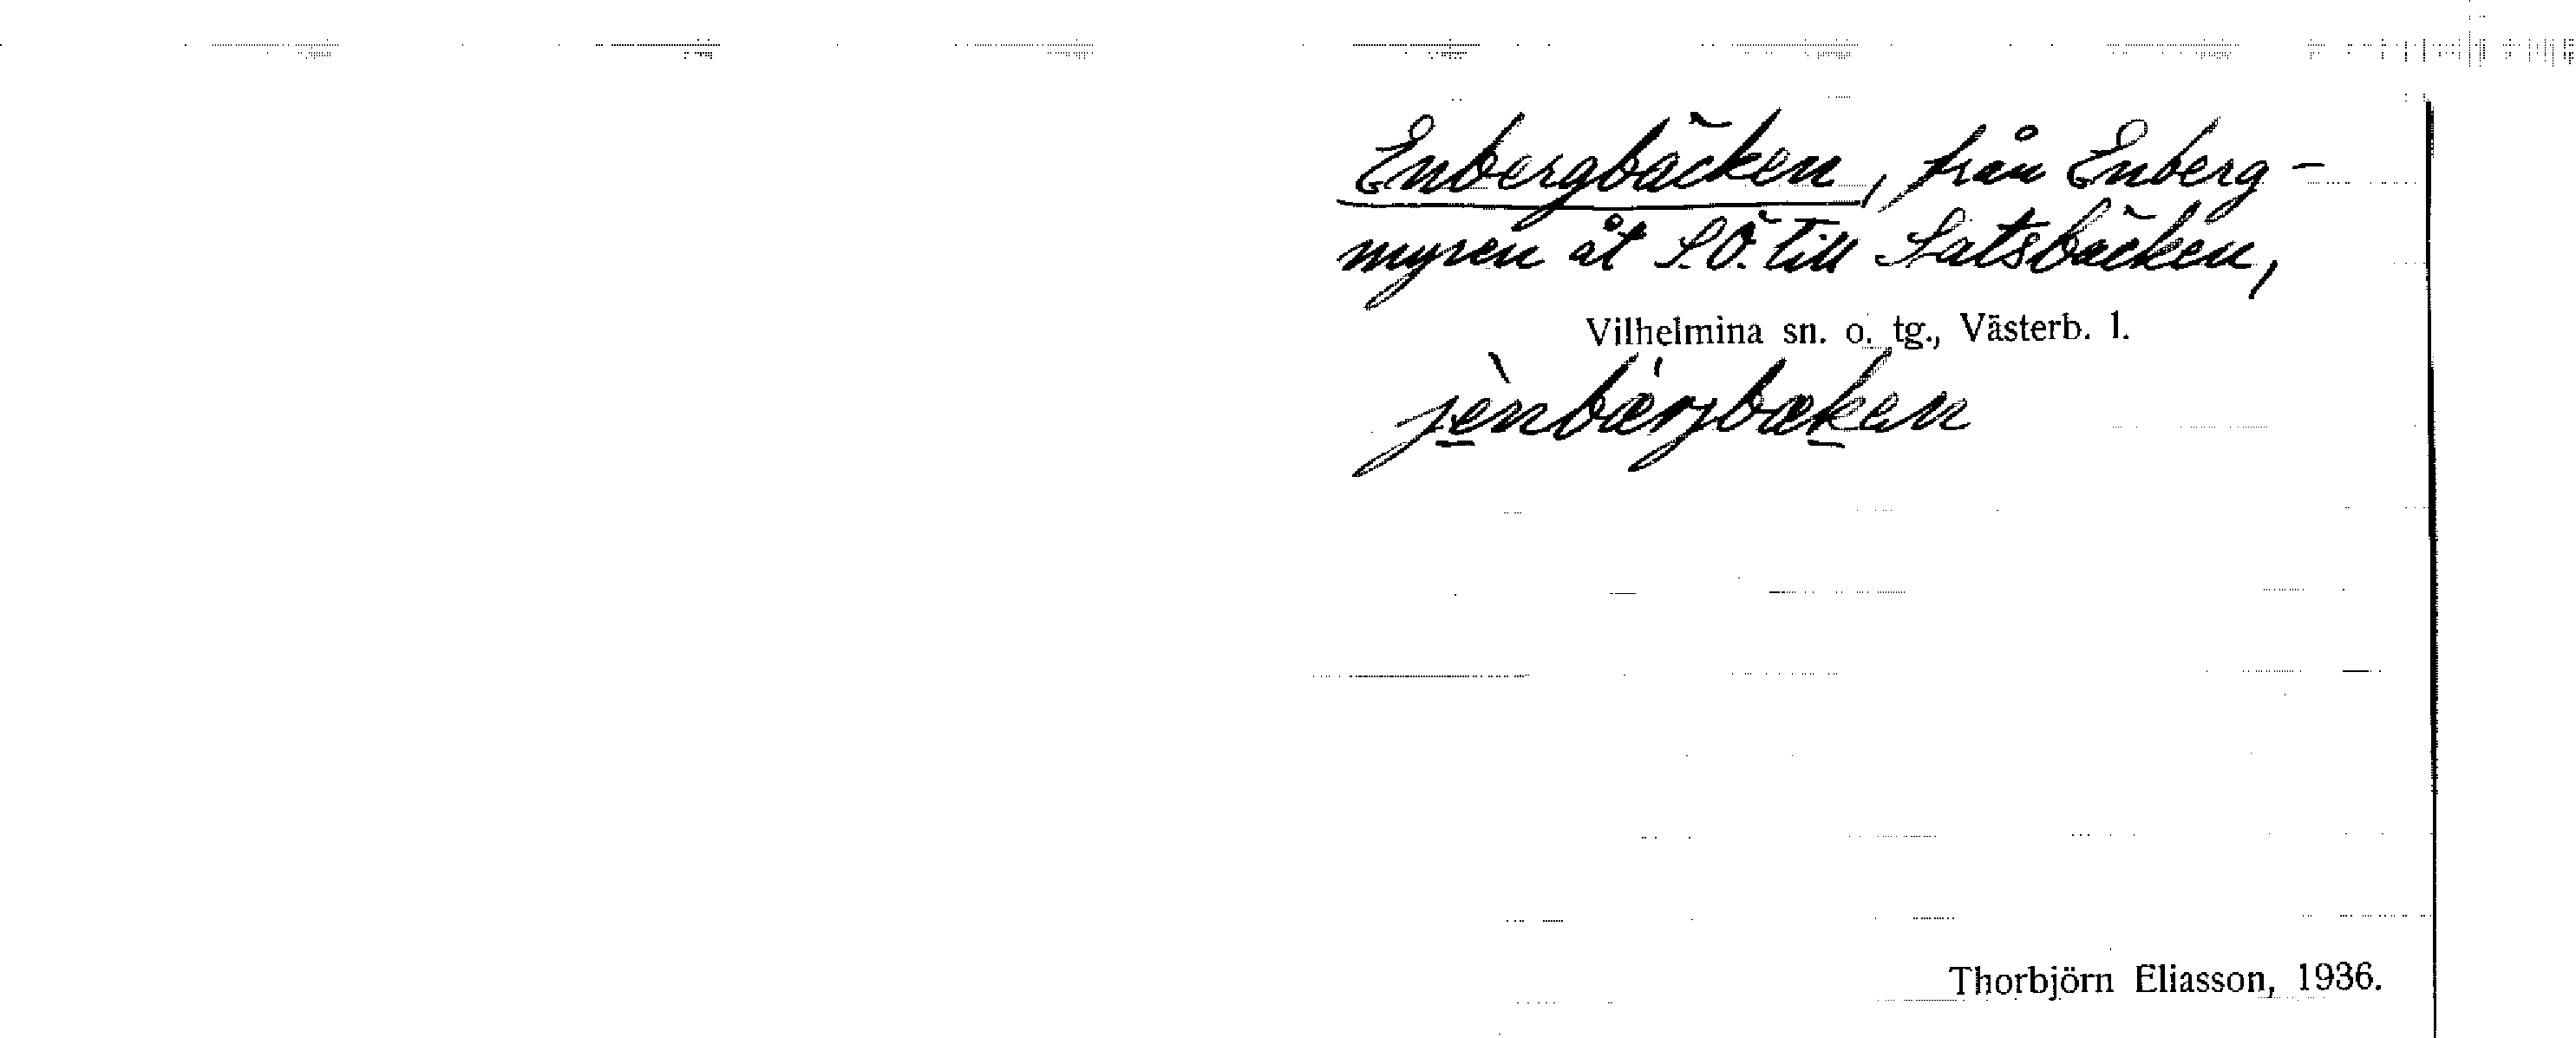 Enbergbäcken, från Enberg-
myren åt S.Ö. till Satsbäcken,
Vilhelmina sn. o. tg., Västerb. l.
jènbærjbækan
Thorbjörn Eliasson, 1936.